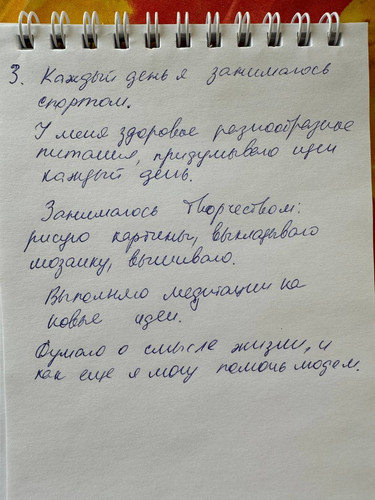 3. Каждый день я занимаюсь
спортом.
У меня здоровое разнообразное
питания, придумываю идеи
каждый день.
Занимаюсь творчеством:
рисую картины, выкладываю
мозаику, вышиваю.
Выполняю медитации на
новые идеи.
Думаю о смысле жизни, и
как еще я могу помочь людям.